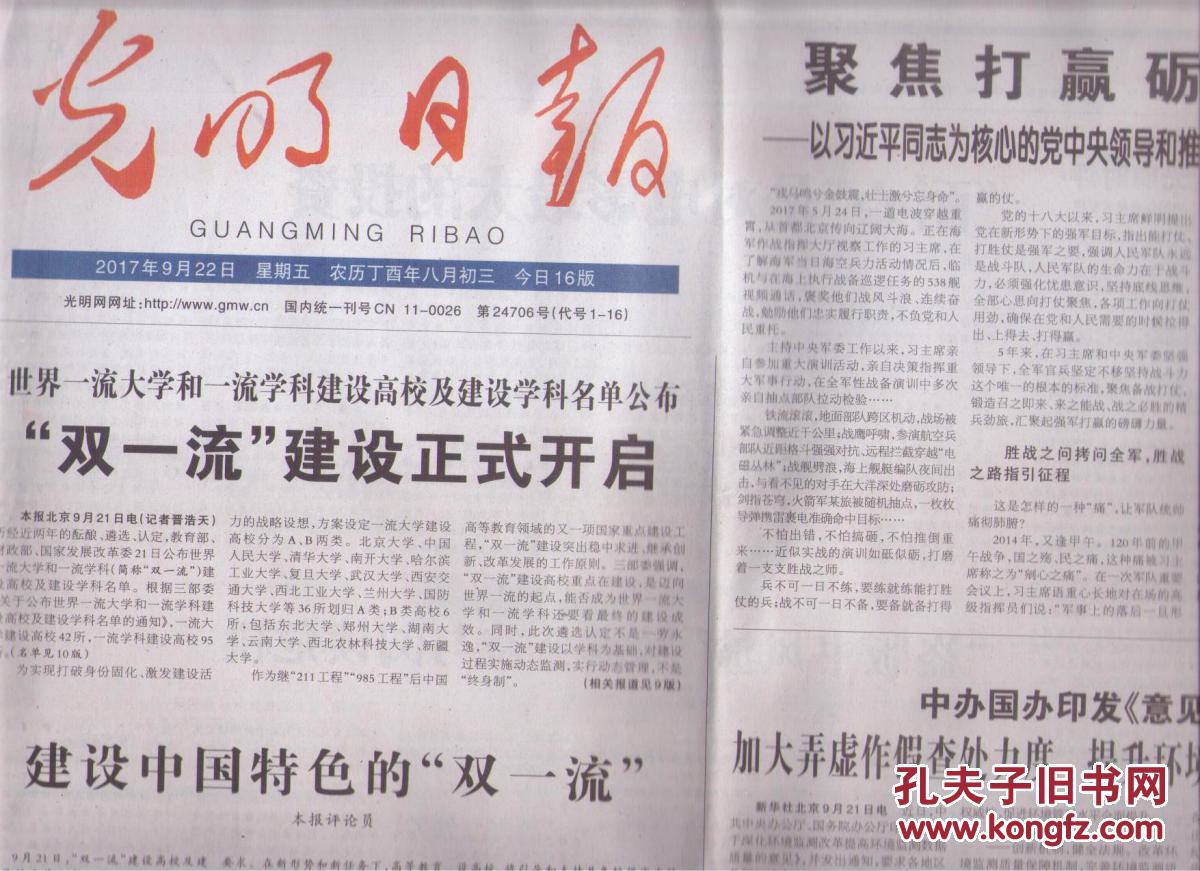 光明日报
GUANGMING RIBAO
2017年9月22日 星期五 农历丁酉年八月初三 今日16版
光明网网址:http://www.gmw.cn 国内统一刊号CN 11-0026 第24706号(代号1-16)
世界一流大学和一流学科建设高校及建设学科名单公布
“双一流”建设正式开启
本报北京9月21日电(记者晋浩天)
历经近两年的酝酿、遴选、认定,教育部、
财政部、国家发展改革委21日公布世界
一流大学和一流学科(简称“双一流”)建
设高校及建设学科名单。根据三部委
《关于公布世界一流大学和一流学科建
设高校及建设学科名单的通知》,一流大
学建设高校42所,一流学科建设高校95
所。(名单见10版)
为实现打破身份固化、激发建设活
力的战略设想,方案设定一流大学建设
高校分为A、B两类。北京大学、中国
人民大学、清华大学、南开大学、哈尔滨
工业大学、复旦大学、武汉大学、西安交
通大学、西北工业大学、兰州大学、国防
科技大学等36所划归A类;B类高校6
所,包括东北大学、郑州大学、湖南大
学、云南大学、西北农林科技大学、新疆
大学。
作为继“211工程”“985工程”后中国
高等教育领域的又一项国家重点建设工
程,“双一流”建设突出稳中求进、继承创
新、改革发展的工作原则。三部委强调,
“双一流”建设高校重点在建设,是迈向
世界一流的起点,能否成为世界一流大
学和一流学科还要看最终的建设成
效。同时,此次遴选认定不是一劳永
逸,“双一流”建设以学科为基础,对建设
过程实施动态监测,实行动态管理,不是
“终身制”。 (相关报道见9版)
建设中国特色的“双一流”
本报评论员
9月21日,“双一流”建设高校及建
要求。在新形势和新任务下,高等教育
聚焦打赢砺
——以习近平同志为核心的党中央领导和推
“戎马鸣兮金鼓震,壮士激兮忘身命”。
2017年5月24日,一道电波穿越重
霄,从首都北京传向辽阔大海。正在海
军作战指挥大厅视察工作的习主席,在
了解海军当日海空兵力活动情况后,临
机与在海上执行战备巡逻任务的538舰
视频通话,褒奖他们战风斗浪、连续奋
战,勉励他们忠实履行职责,不负党和人
民重托。
主持中央军委工作以来,习主席亲
自参加重大演训活动,亲自决策指挥重
大军事行动,在全军性战备演训中多次
亲自抽点部队拉动检验……
铁流滚滚,地面部队跨区机动,战场被
紧急调整近千公里;战鹰呼啸,参演航空兵
部队近距格斗强强对抗、远程拦截穿越“电
磁丛林”;战舰劈浪,海上舰艇编队夜间出
击,与看不见的对手在大洋深处磨砺攻防;
剑指苍穹,火箭军某旅被随机抽点,一枚枚
导弹携雷裹电准确命中目标……
不怕出错,不怕搞砸,不怕推倒重
来……近似实战的演训如砥似砺,打磨
着一支支胜战之师。
兵不可一日不练,要练就练能打胜
仗的兵;战不可一日不备,要备就备打得
赢的仗。
党的十八大以来,习主席鲜明提出
党在新形势下的强军目标,指出能打仗、
打胜仗是强军之要,强调人民军队永远
是战斗队,人民军队的生命力在于战斗
力,必须强化忧患意识,坚持底线思维,
全部心思向打仗聚焦,各项工作向打仗
用劲,确保在党和人民需要的时候拉得
出、上得去、打得赢。
5年来,在习主席和中央军委坚强
领导下,全军官兵坚定不移坚持战斗力
这个唯一的根本的标准,聚焦备战打仗,
锻造召之即来、来之能战、战之必胜的精
兵劲旅,汇聚起强军打赢的磅礴力量。
胜战之问拷问全军,胜战
之路指引征程
这是怎样的一种“痛”,让军队统帅
痛彻肺腑?
2014年,又逢甲午。120年前的甲
午战争,国之殇,民之痛,这种痛被习主
席称之为“剜心之痛”。在一次军队重要
会议上,习主席语重心长地对在场的高
级指挥员们说:“军事上的落后一旦形
中办国办印发《意见
加大弄虚作假查处力度 提升环境
新华社北京9月21日电 近日,中
共中央办公厅、国务院办公厅印
于深化环境监测改革提高环境监测数据
质量的意见》,并发出通知,要求各地区
——创新机制,健全法规。改革环
境监测质量保障机制,完善环境监测
孔夫子旧书网
www.kongfz.com